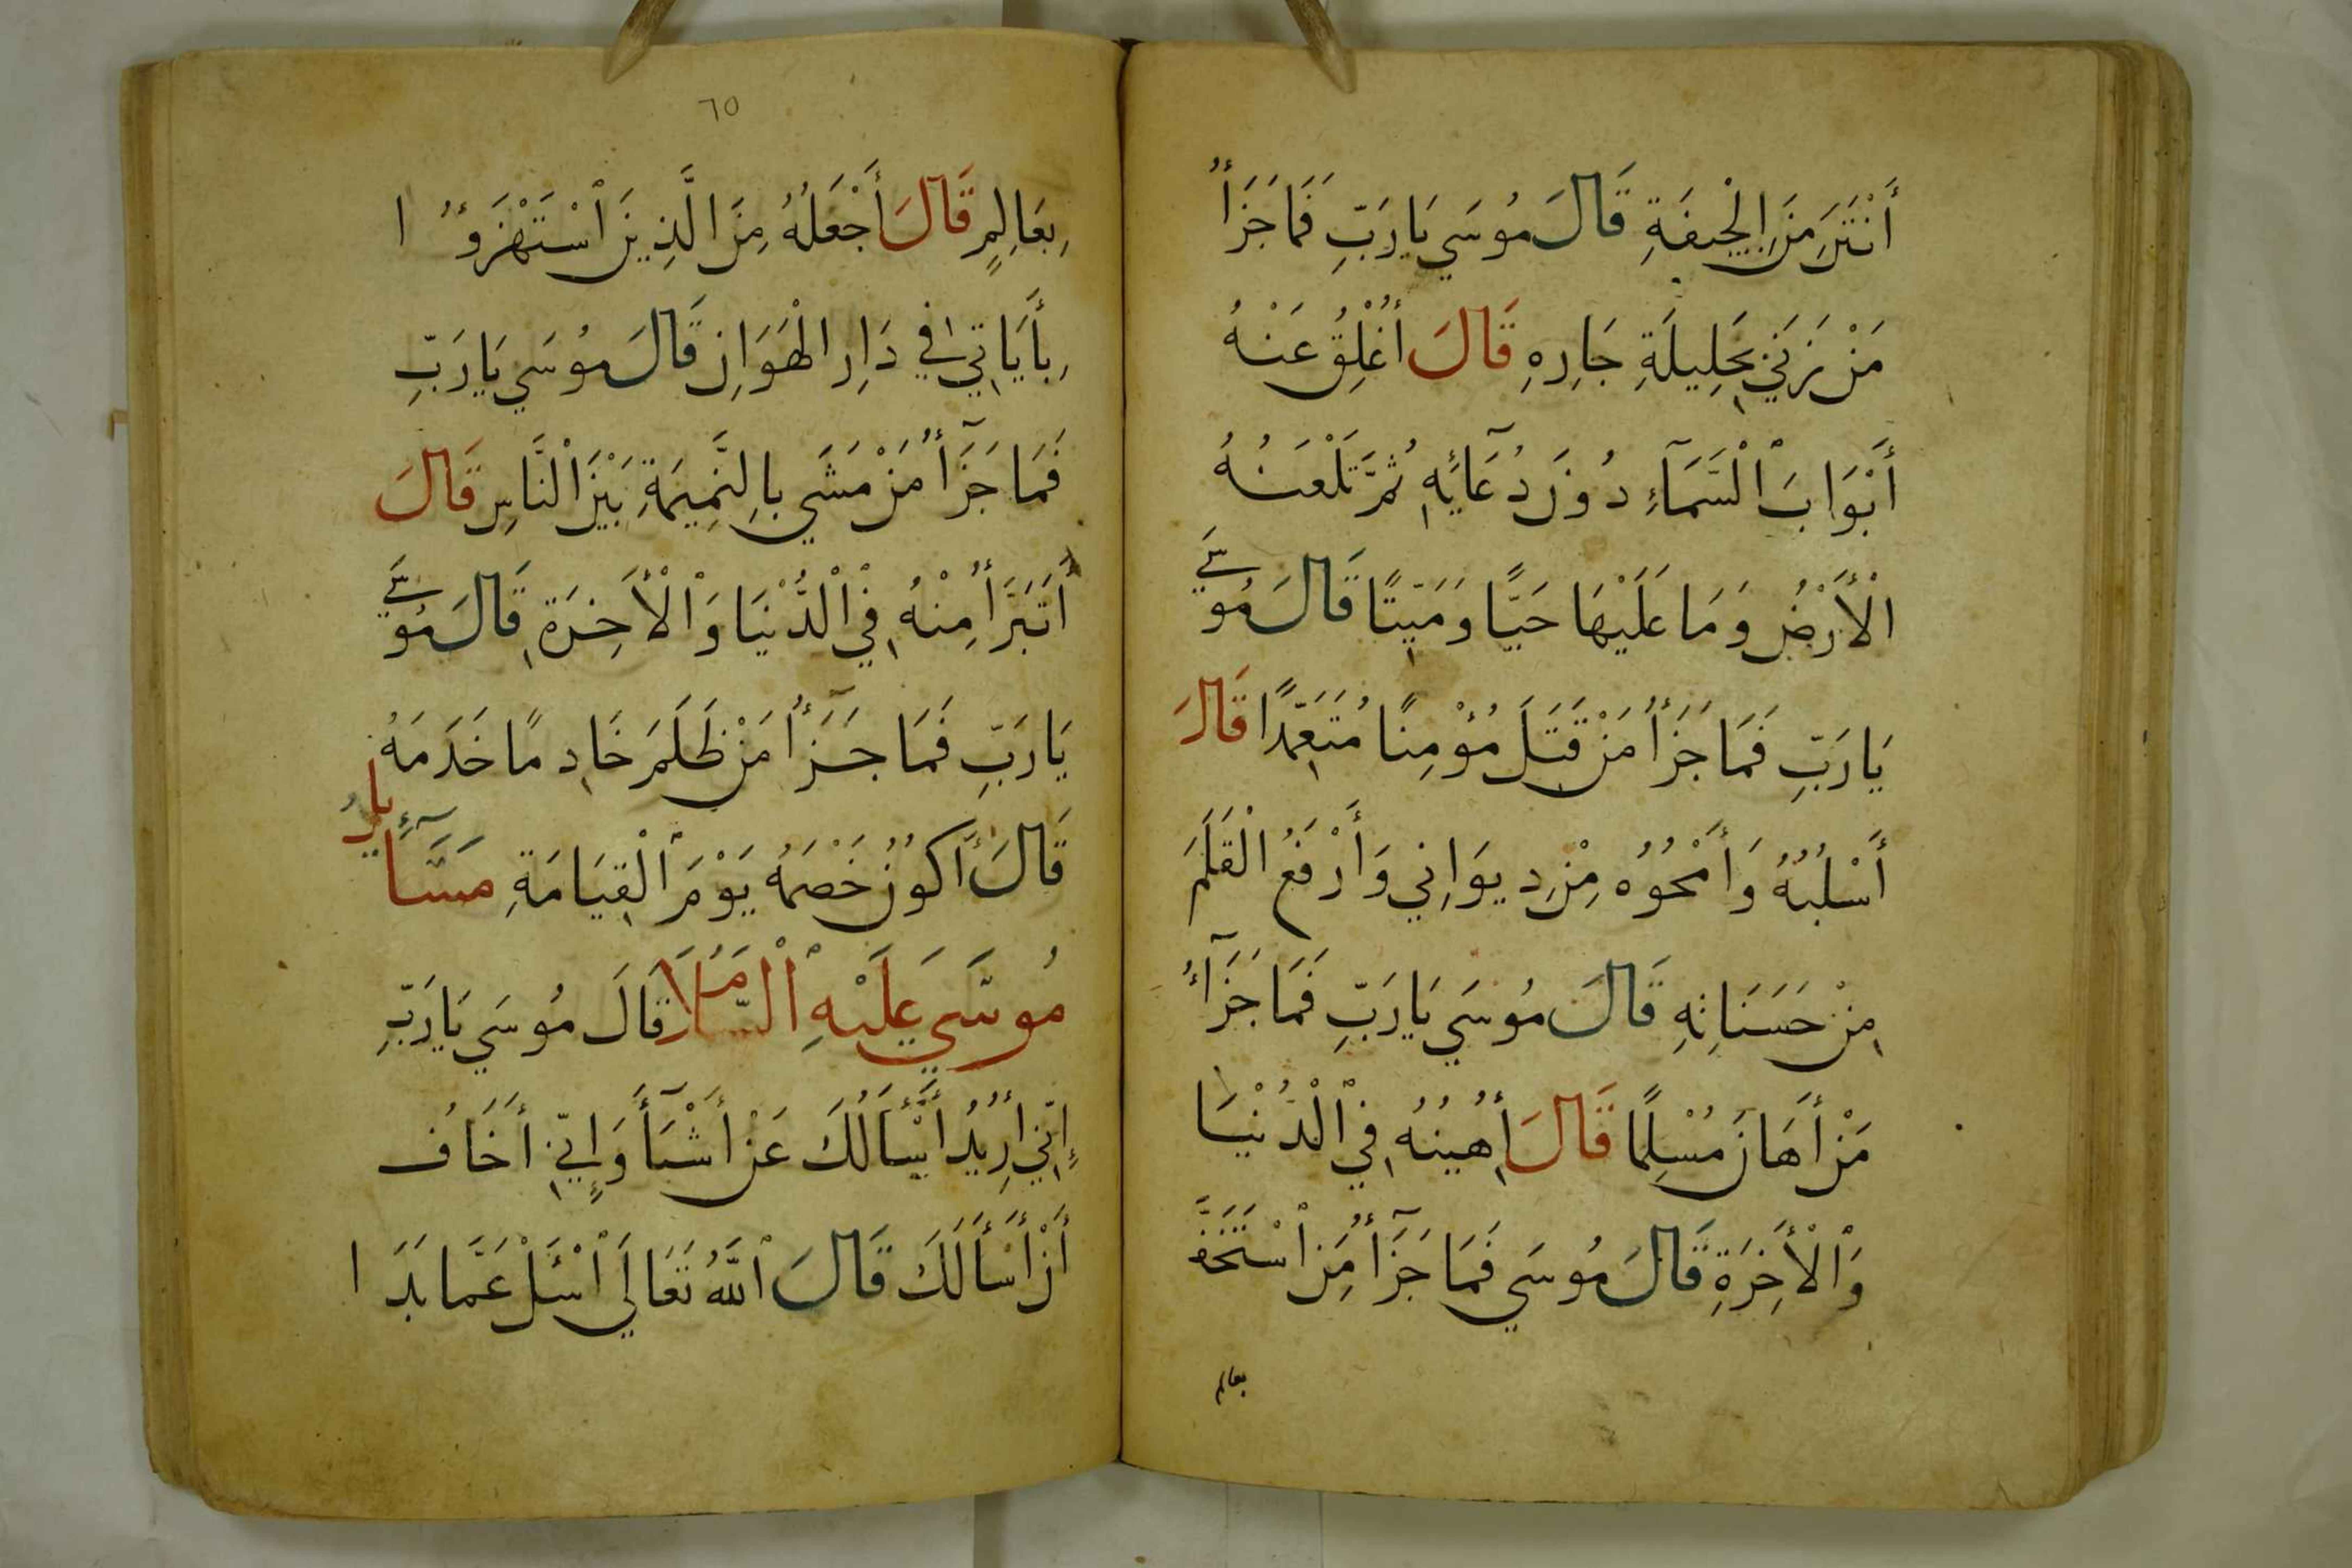 أَنْتَنَ مِنَ الْجِيفَةِ قَالَ مُوسَي يَارَبِّ فَمَا جَزَأُ
مَنْ يَزَنِي بِحَلِيلَةِ جَارِهِ قَالَ أُغْلِقُ عَنْهُ
أَبْوَابَ ٱلْسَّمَآءِ دُونَ دُعَآئِهِ ثُمَّ تَلْعَنُهُ
الْأَرْضُ وَمَا عَلَيْهَا حَيًّا وَمَيِّتًا قَالَ مُوسَي
يَارَبِّ فَمَا جَزَأُ مَنْ قَتَلَ مُؤْمِنًا مُتَعَمِّدًا قَالَ
أَسْلُبُهُ وَأَمْحُوُهُ مِنْ دِيوَانِي وَأَرْفَعُ الْقَلَمَ
مِنْ حَسَنَاتِهِ قَالَ مُوسَي يَارَبِّ فَمَا جَزَآءُ
مَنْ أَهَانَ مُسْلِمًا قَالَ أُهِينُهُ فِي ٱلْدُّنْيَا
وَٱلْأَخِرَةِ قَالَ مُوسَي فَمَا جَزَآُ مَنِ ٱسْتَخَفَّ
بعالم
٦٥
بِعَالِمٍ قَالَ أَجْعَلُهُ مِنَ الَّذِينَ ٱسْتَهْزَؤُا
بِأَيَاتِي فِي دَارِ الْهَوَانِ قَالَ مُوسَي يَارَبِّ
فَمَا جَزَآُ مَنْ مَشَي بِالنَّمِيمَةِ بَيْنَ ٱلْنَّاسِ قَالَ
أَتَبَرَّأُ مِنْهُ فِي ٱلْدُّنْيَا وَٱلْأَخِرَةِ قَالَ مُوسَي
يَارَبِّ فَمَا جَزَآُ مَنْ ظَلَمَ خَادِمًا خَدَمَهُ
قَالَ أَكُونُ خَصْمَهُ يَوْمَ ٱلْقِيَامَةِ مَسَآئِلُ
مُوسَي عَلَيْهِ ٱلْسَّلَامُ قَالَ مُوسَي يَارَبِّ
إِنِّي أُرِيْدُ أَسْأَلُكَ عَنْ أَشْيَأَ وَإِنِّي أَخَافُ
أَنْ أَسْأَلَكَ قَالَ ٱللَّهُ تَعَالَي ٱسْئَلْ عَمَّا بَدَا